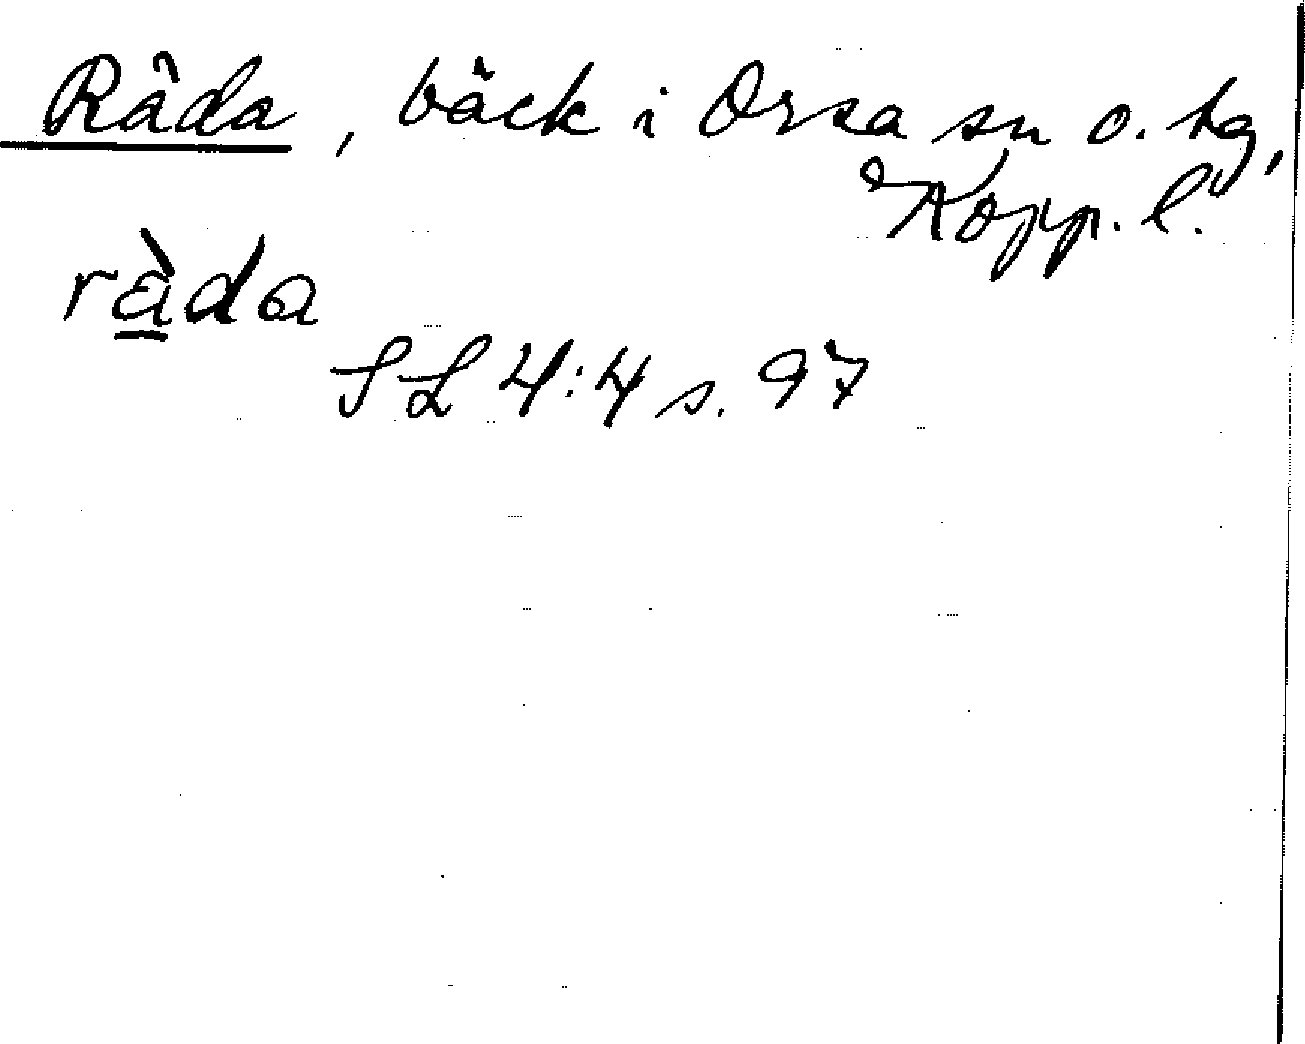 Råda, bäck i Orsa sn o. tg,
Kopp. l.
ràda
SL 4:4 s. 97